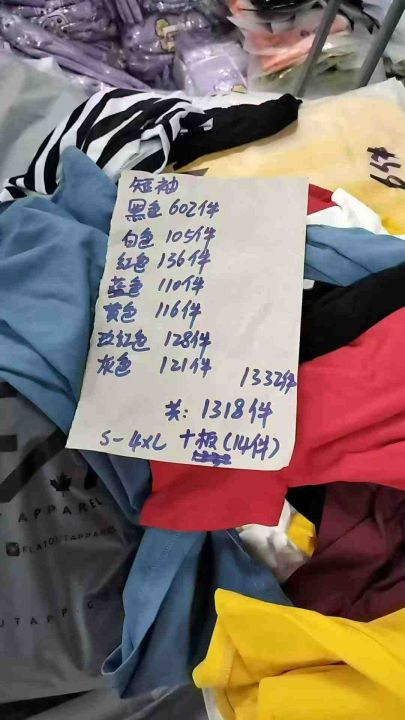 短袖
黑色 602件
白色 105件
红色 136件
蓝色 110件
黄色 116件
玫红色 128件
灰色 121件
1332件
共: 1318件
S-4XL +板(14件)
6件
APPAREL